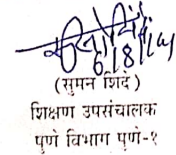 6/8/14
(सुमन शिंदे)
शिक्षण उपसंचालक
पुणे विभाग पुणे-१